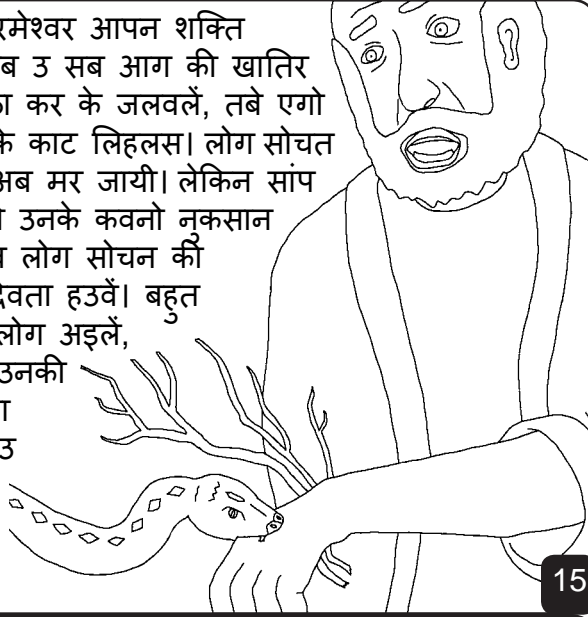 रमेश्वर आपन शक्ति
ब उ सब आग की खातिर
कर के जलवलें, तबे एगो
के काट लिहलस। लोग सोचत
अब मर जायी। लेकिन सांप
उनके कवनो नुकसान
लोग सोचन की
देवता हउवें। बहुत
लोग अइलें,
उनकी
उ
15